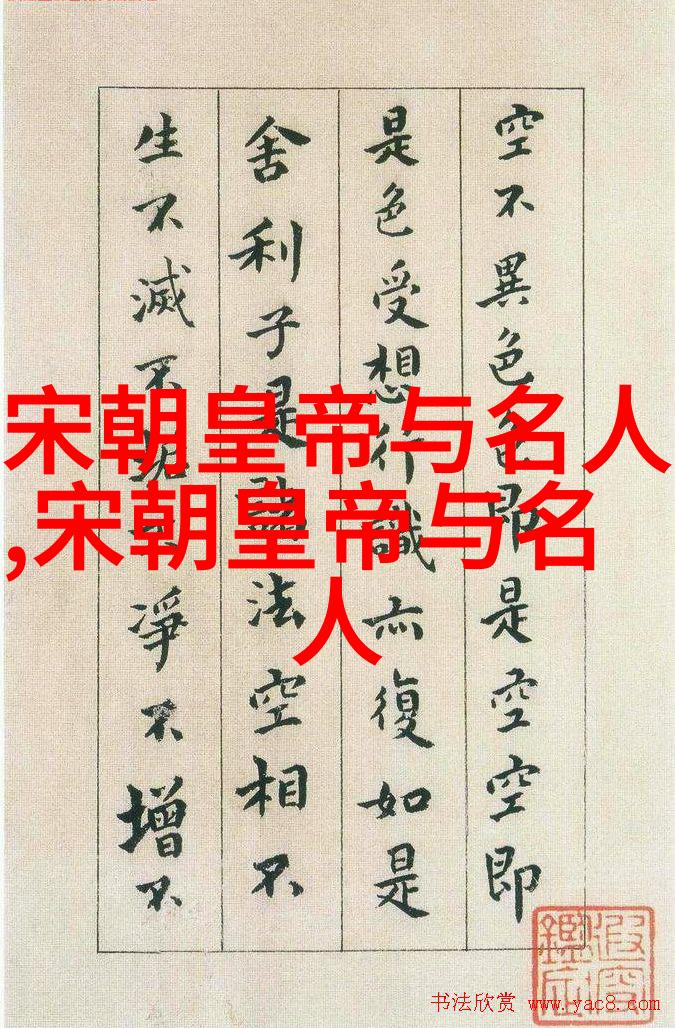 空不異色色即是空空即
是色受想行識亦復如是
舍利子是諸法空相不
生不滅不垢不淨不增不
宋朝皇帝与名人
,宋朝皇帝与名
人
书法欣赏 www.yac8.com